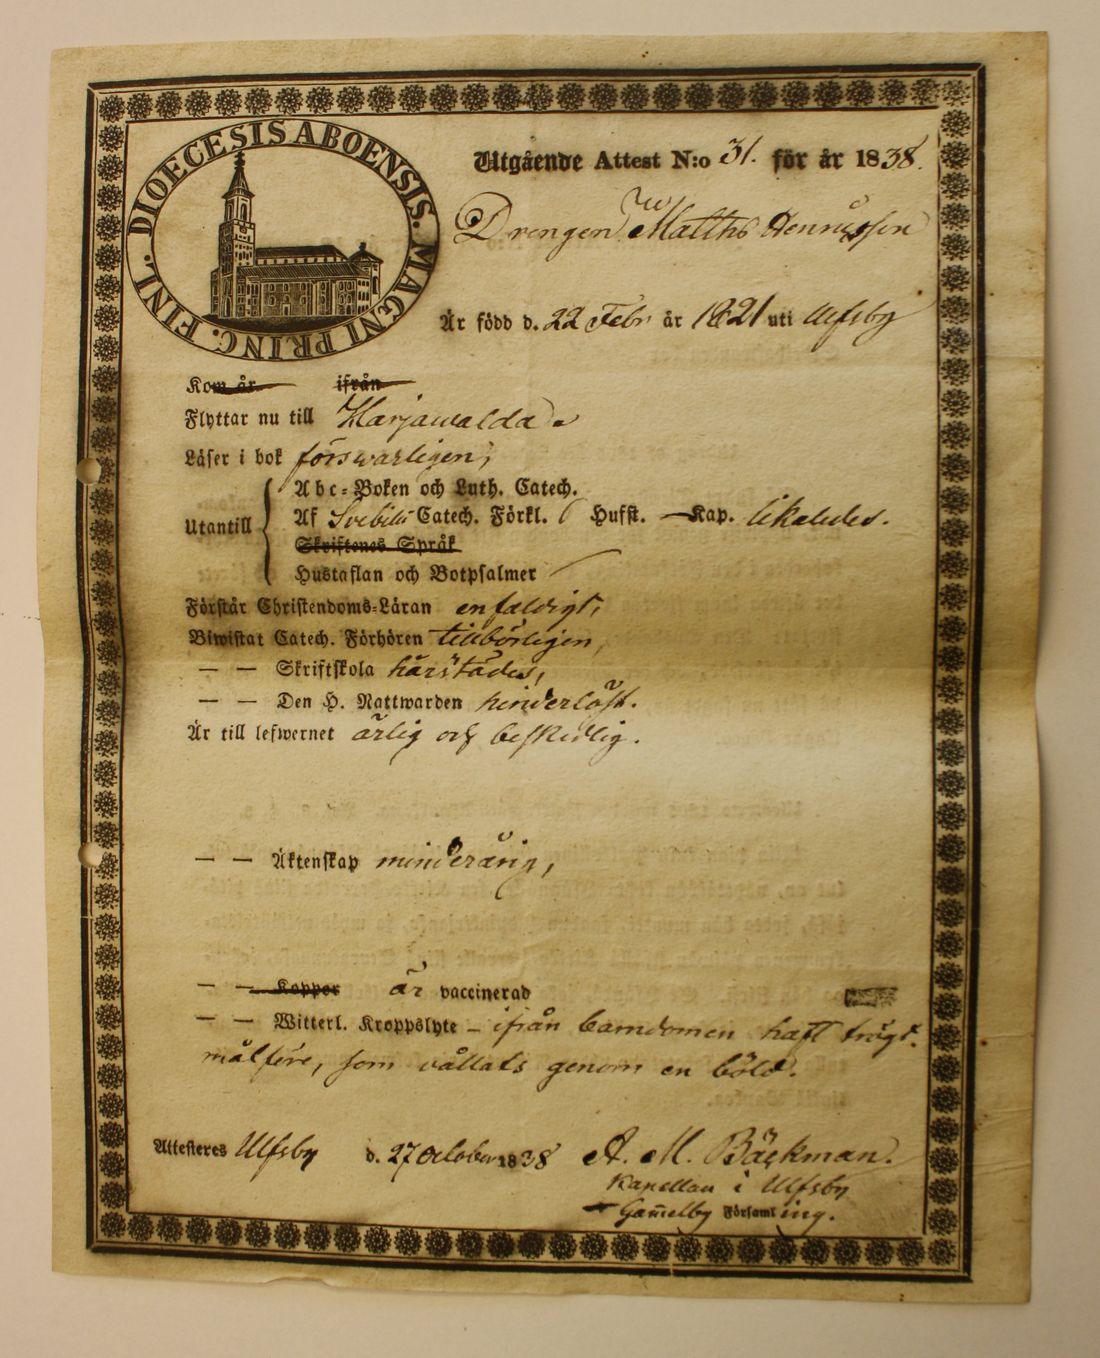 DIOECESIS ABOENSIS. MAGNI PRINC. FINL.
Utgående Attest N:o 31. för år 1838.
Drengen Matths Henricsson
Är född d. 22 Febr år 1821 uti Ulfsby
Kom år ifrån
Flyttar nu till Harjawalda.
Läser i bok förswarligen,
Abc-Boken och Luth. Catech.
Utantill
Af Svebilii Catech. Förkl. 6 Hufst. — Kap. likaledes.
Skriftenes Språk
Hustaflan och Botpsalmer
Förstår Christendoms-Läran enfaldigt,
Biwistat Catech. Förhören tillbörligen,
— — Skriftskola härstädes,
— — Den H. Nattwarden hinderlöst.
Är till lefwernet ärlig och beskedlig.
— — Äktenskap minderårig,
— — Koppor är vaccinerad
— — Witterl. Kroppslyte – ifrån barndomen haft trögt
målföre, som vållats genom en böld.
Attesteres Ulfsby d. 27 October 1838 A. M. Bäckman.
Kapellan i Ulfsby
Gam̅elby Församling.